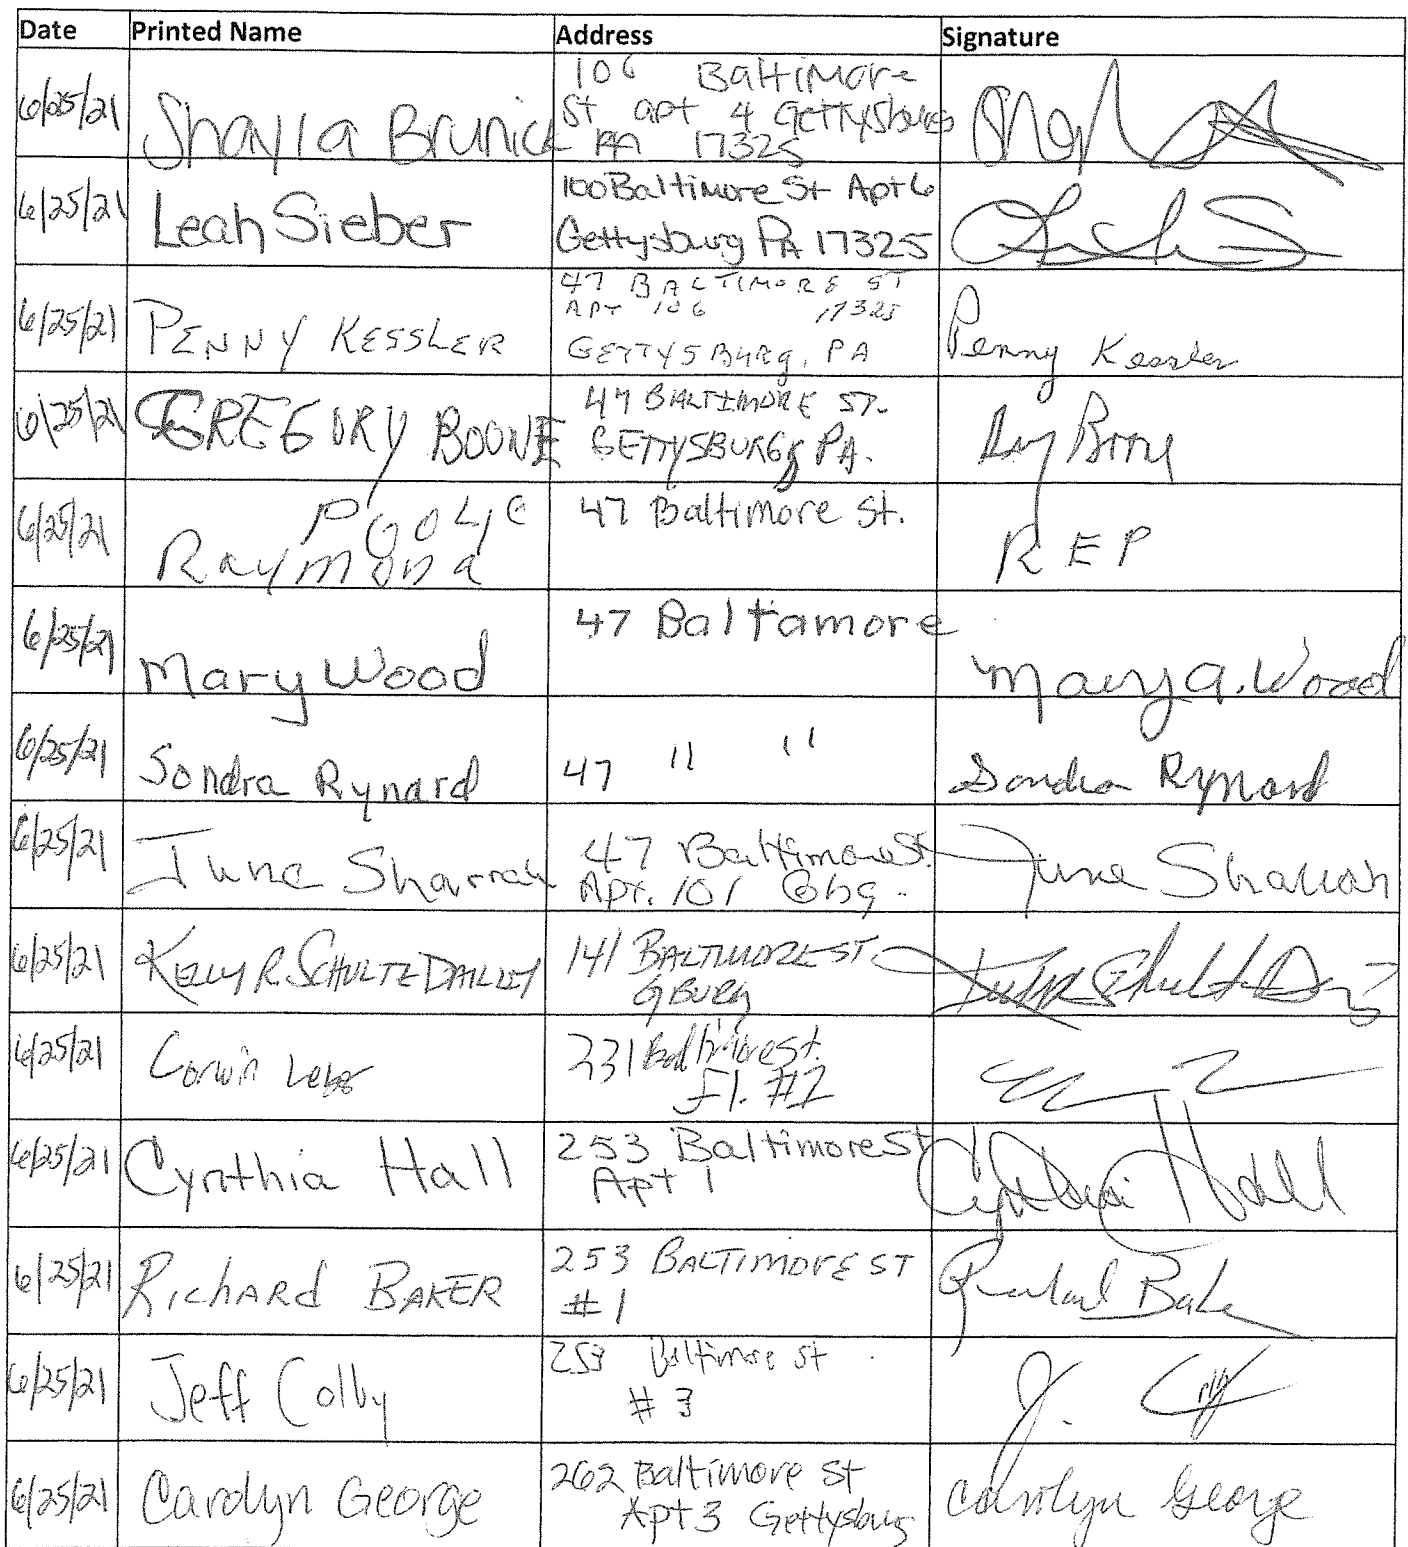 Date Printed Name Address Signature
6/25/21 Shayla Brunick 106 Baltimore
St apt 4 Gettysburg
PA 17325
6/25/21 Leah Sieber 100 Baltimore St Apt 6
Gettysburg PA 17325
6/25/21 PENNY KESSLER 47 BALTIMORE ST
APT 106 17325
GETTYSBURG, PA Penny Kessler
6/25/21 GREGORY BOONE 47 BALTIMORE ST.
GETTYSBURG, PA.
6/25/21 Poole
Raymond 47 Baltimore St. REP
6/25/21 Mary Wood 47 Baltamore Mary A. Wood
6/25/21 Sondra Rynard 47 " " Sondra Rynard
6/25/21 June Sharrah 47 Baltimore St.
Apt. 101 Gbg. June Sharrah
6/25/21 KELLY R. SCHULTE DAILEY 141 BALTIMORE ST.
GBURG
6/25/21 Corwin 231 Baltimore St.
Fl. #2
6/25/21 Cynthia Hall 253 Baltimore St
Apt 1 Cynthia Hall
6/25/21 Richard BAKER 253 BALTIMORE ST
#1 Richard Baker
6/25/21 Jeff Colby 253 Baltimore St
#3 J.
6/25/21 Carolyn George 262 Baltimore St
Apt 3 Gettysburg Carolyn George